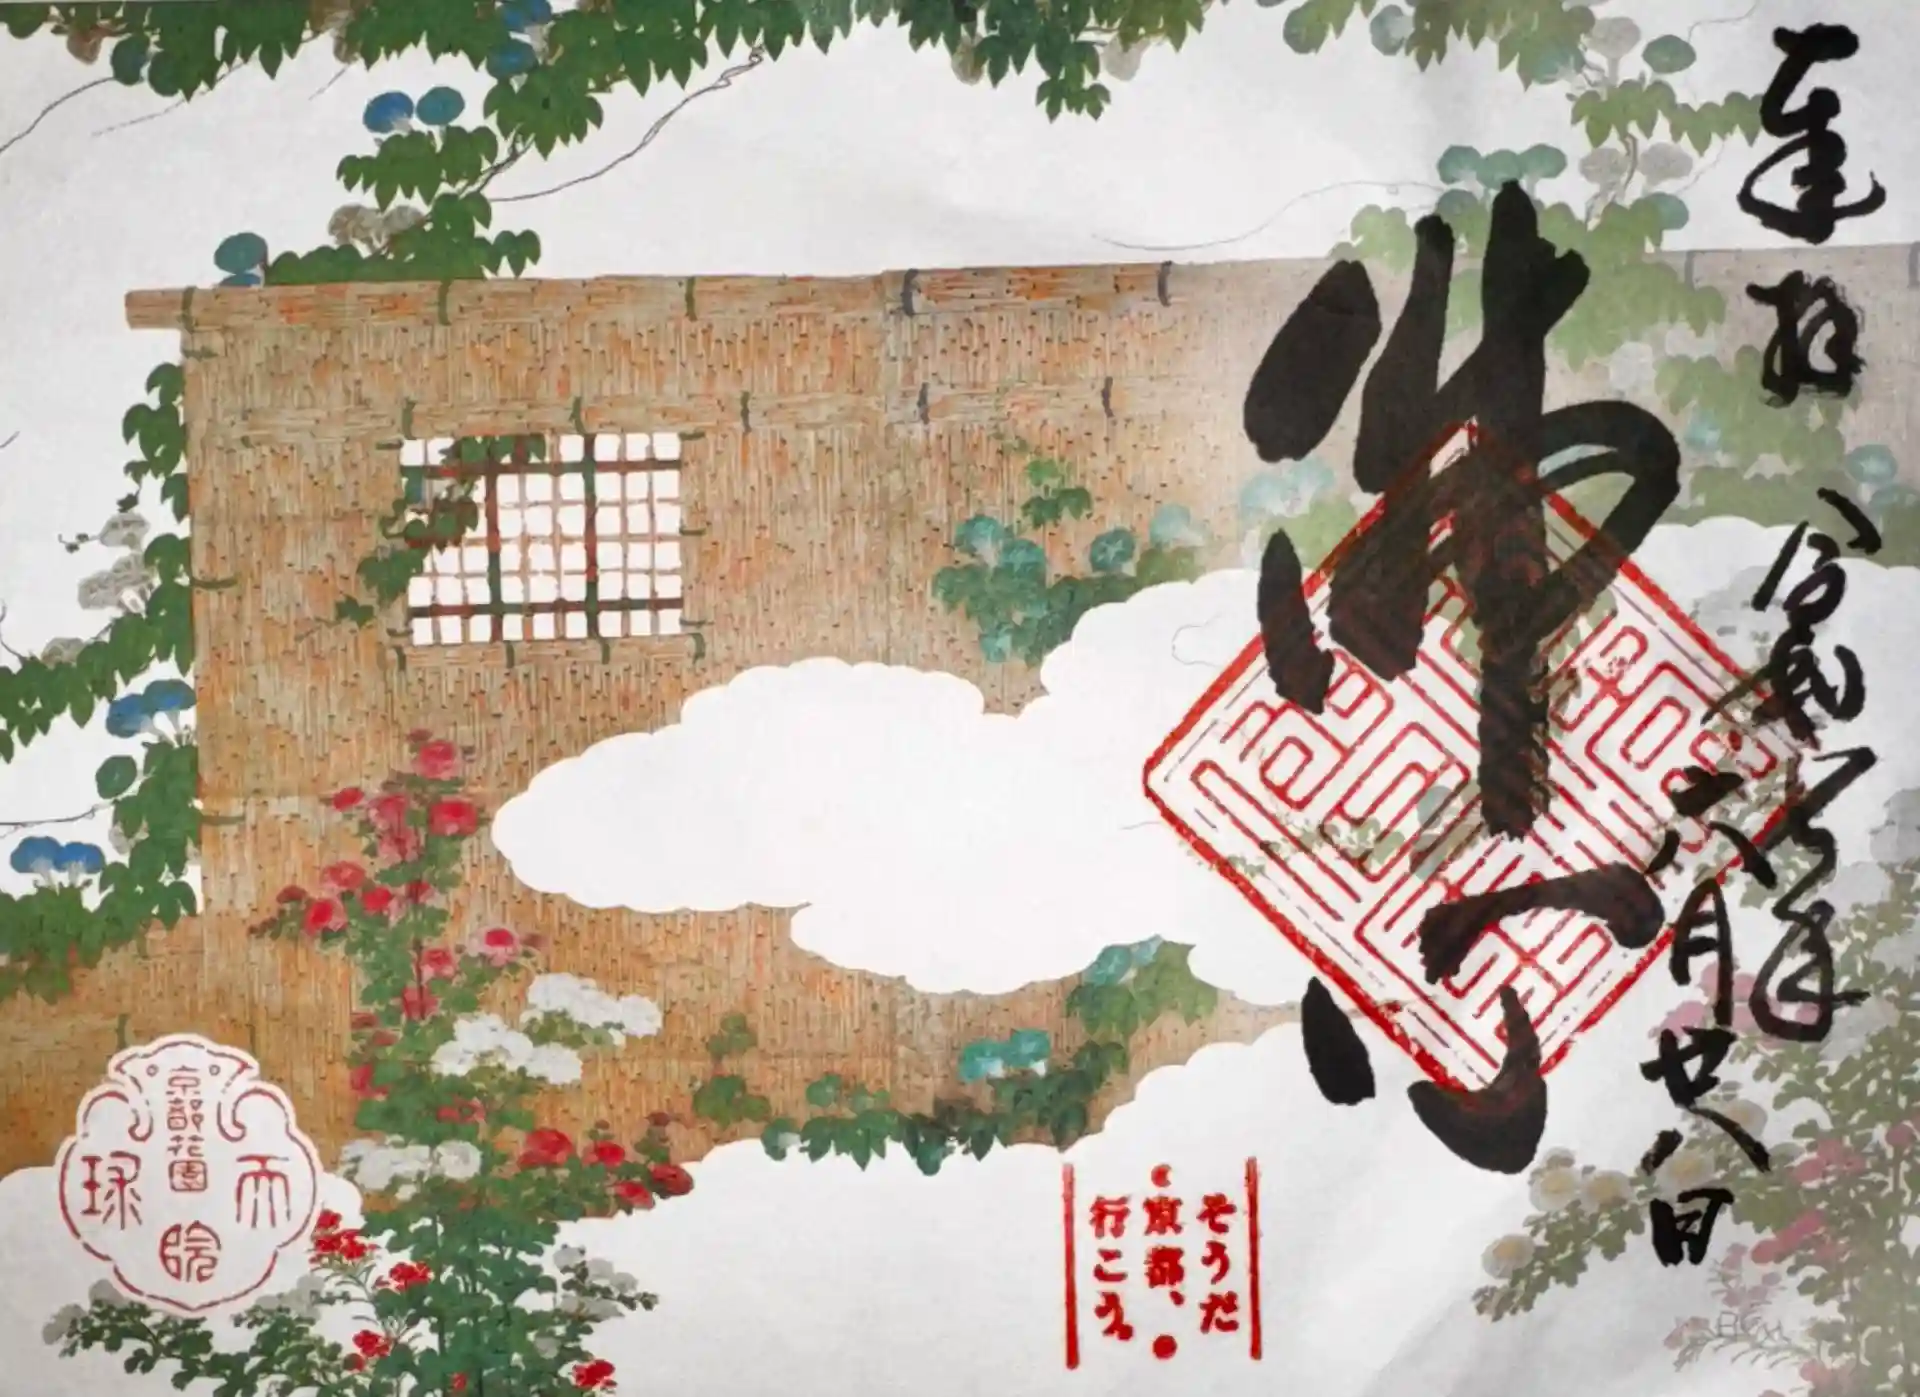 奉拝
令和七年
六月廿八日
佛心
そうだ
京都、
行こう。
京都花園
天球院